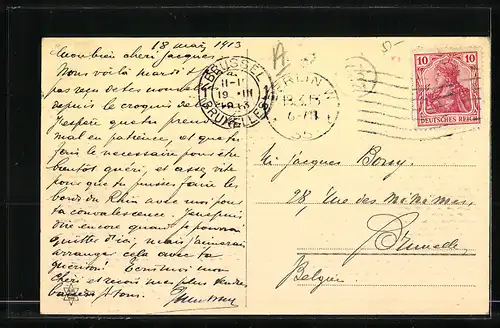 18 mars 1913
mon bien chéri Jacques
Nous voilà mardi et
pas reçu de tes nouvelles
depuis le croquis de
J'espère que tu prends
mal en patience, et que tu
fais le nécessaire pour être
bientôt guéri, et assez vite
pour que tu puisses faire les
bords du Rhin avec moi pour
ta convalescence. Je ne puis
dire encore quand je pourrai
quitter d'ici, mais j'aimerais
arranger cela avec ta
guérison. Écris moi mon
chéri et reçois mes plus tendres
baisers
BRUSSEL
19 III
1913
BRUXELLES
BERLIN W
18.3.13
6-7N
10 10
DEUTSCHES REICH
Mr Jacques
28, Rue des Minimes
Bruxelles
Belgique